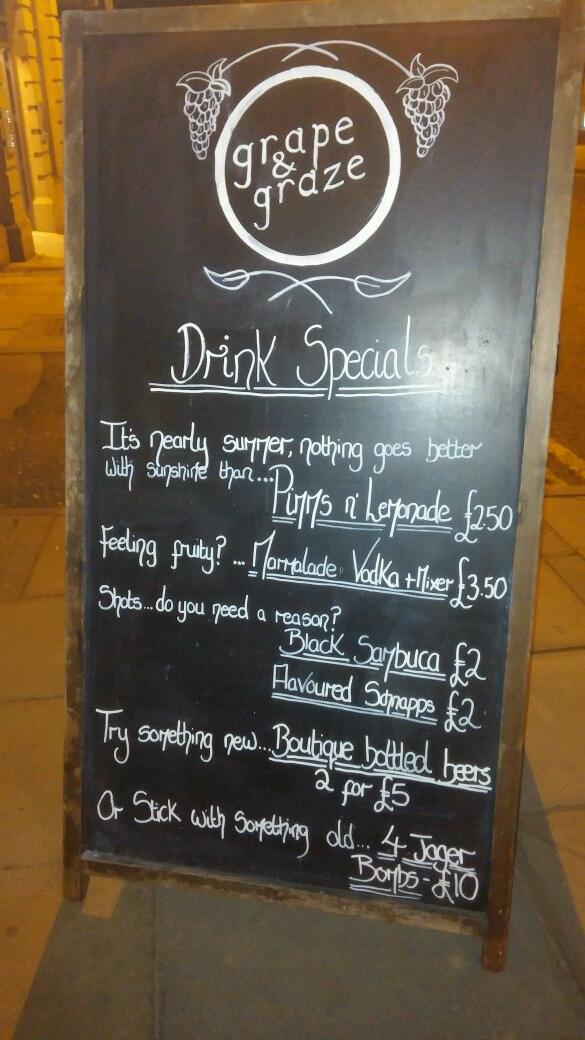 grape
&
graze
Drink Specials
It's nearly summer, nothing goes better
with sunshine than...
Pimms n' Lemonade £2.50
Feeling fruity? ... Marmalade Vodka + Mixer £3.50
Shots... do you need a reason?
Black Sambuca £2
Flavoured Schnapps £2
Try something new... Boutique bottled beers
2 for £5
Or Stick with something old... 4 Jager
Bombs - £10